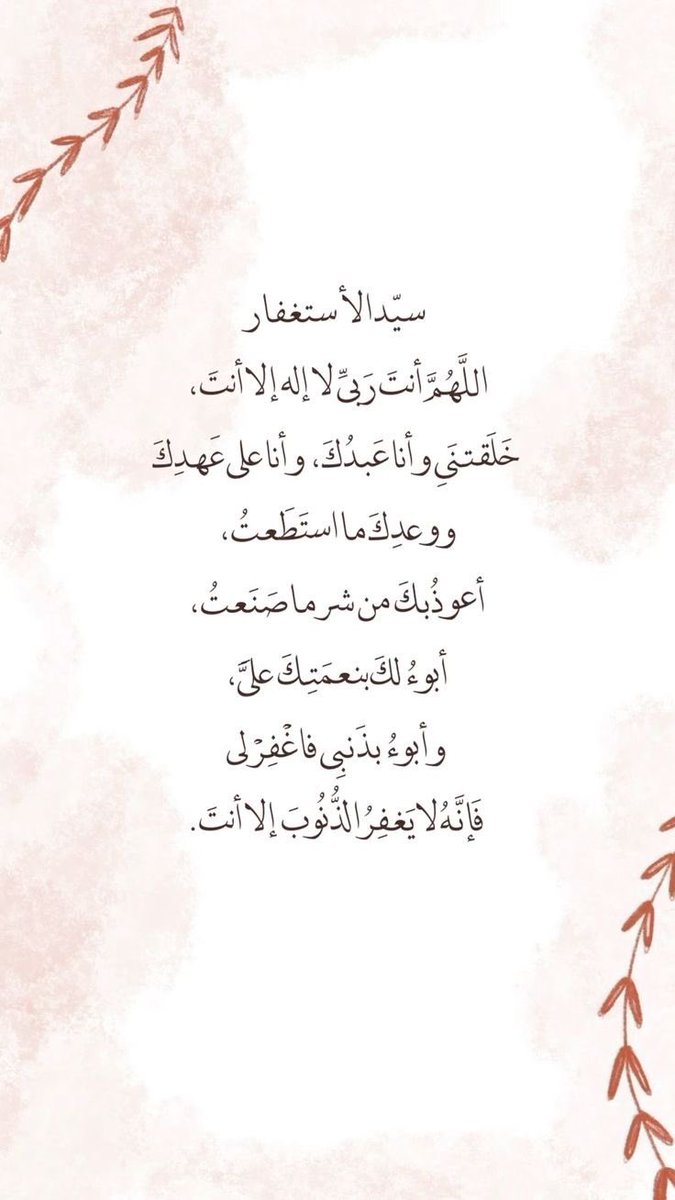 سيّد الأستغفار
اللَّهُمَّ أنتَ رَبىِّ لا إله إلا أنتَ،
خَلَقتنَىِ وأنا عَبدُكَ، وأنا على عَهدِكَ
ووعدِكَ ما استَطَعتُ،
أعوذُبكَ من شر ما صَنَعتُ،
أبوءُ لكَ بنعمَتِكَ علىَّ،
وأبوءُ بذَنبِى فاغْفِرْ لى
فَإنَّهُ لا يَغفِرُ الذُّنُوبَ إلا أنتَ.